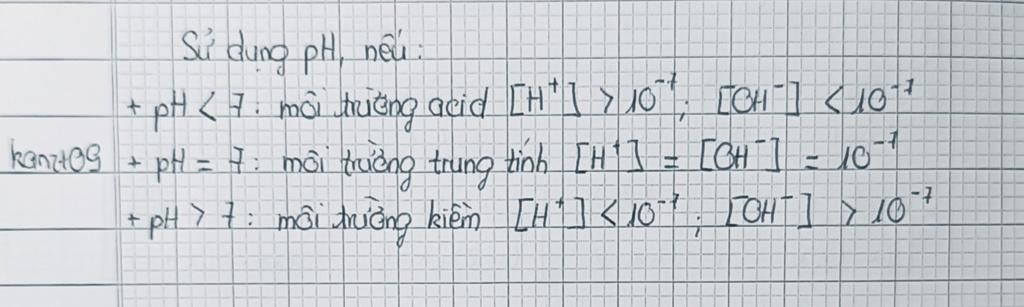 Sử dụng pH, nếu:
+ pH < 7: môi trường acid [H⁺] > 10⁻⁷; [OH⁻] < 10⁻⁷
kanzt09 + pH = 7: môi trường trung tính [H⁺] = [OH⁻] = 10⁻⁷
+ pH > 7: môi trường kiềm [H⁺] < 10⁻⁷; [OH⁻] > 10⁻⁷